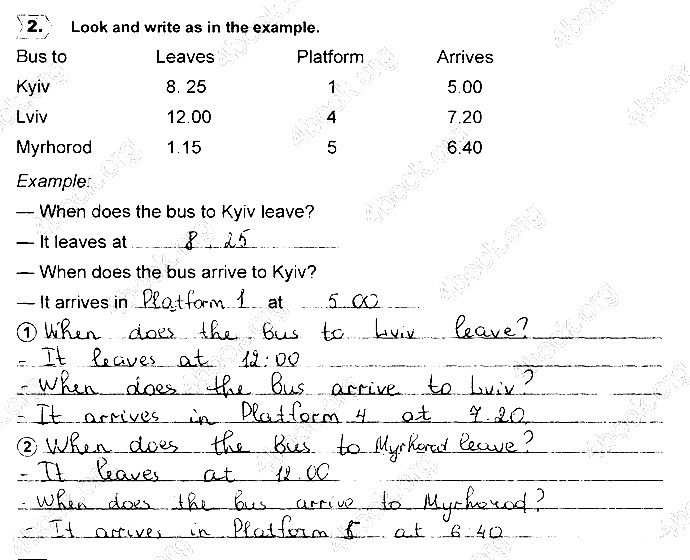 2. Look and write as in the example.
Bus to Leaves Platform Arrives
Kyiv 8. 25 1 5.00
Lviv 12.00 4 7.20
Myrhorod 1.15 5 6.40
Example:
— When does the bus to Kyiv leave?
— It leaves at 8.25
— When does the bus arrive to Kyiv?
— It arrives in Platform 1 at 5 00
1 When does the bus to Lviv leave?
- It leaves at 12:00
- When does the bus arrive to Lviv?
- It arrives in Platform 4 at 7.20
2 When does the bus to Myrhorod leave?
- It leaves at 12.00
- When does the bus arrive to Myrhorod?
- It arrives in Platform 5 at 6 40
4book.org